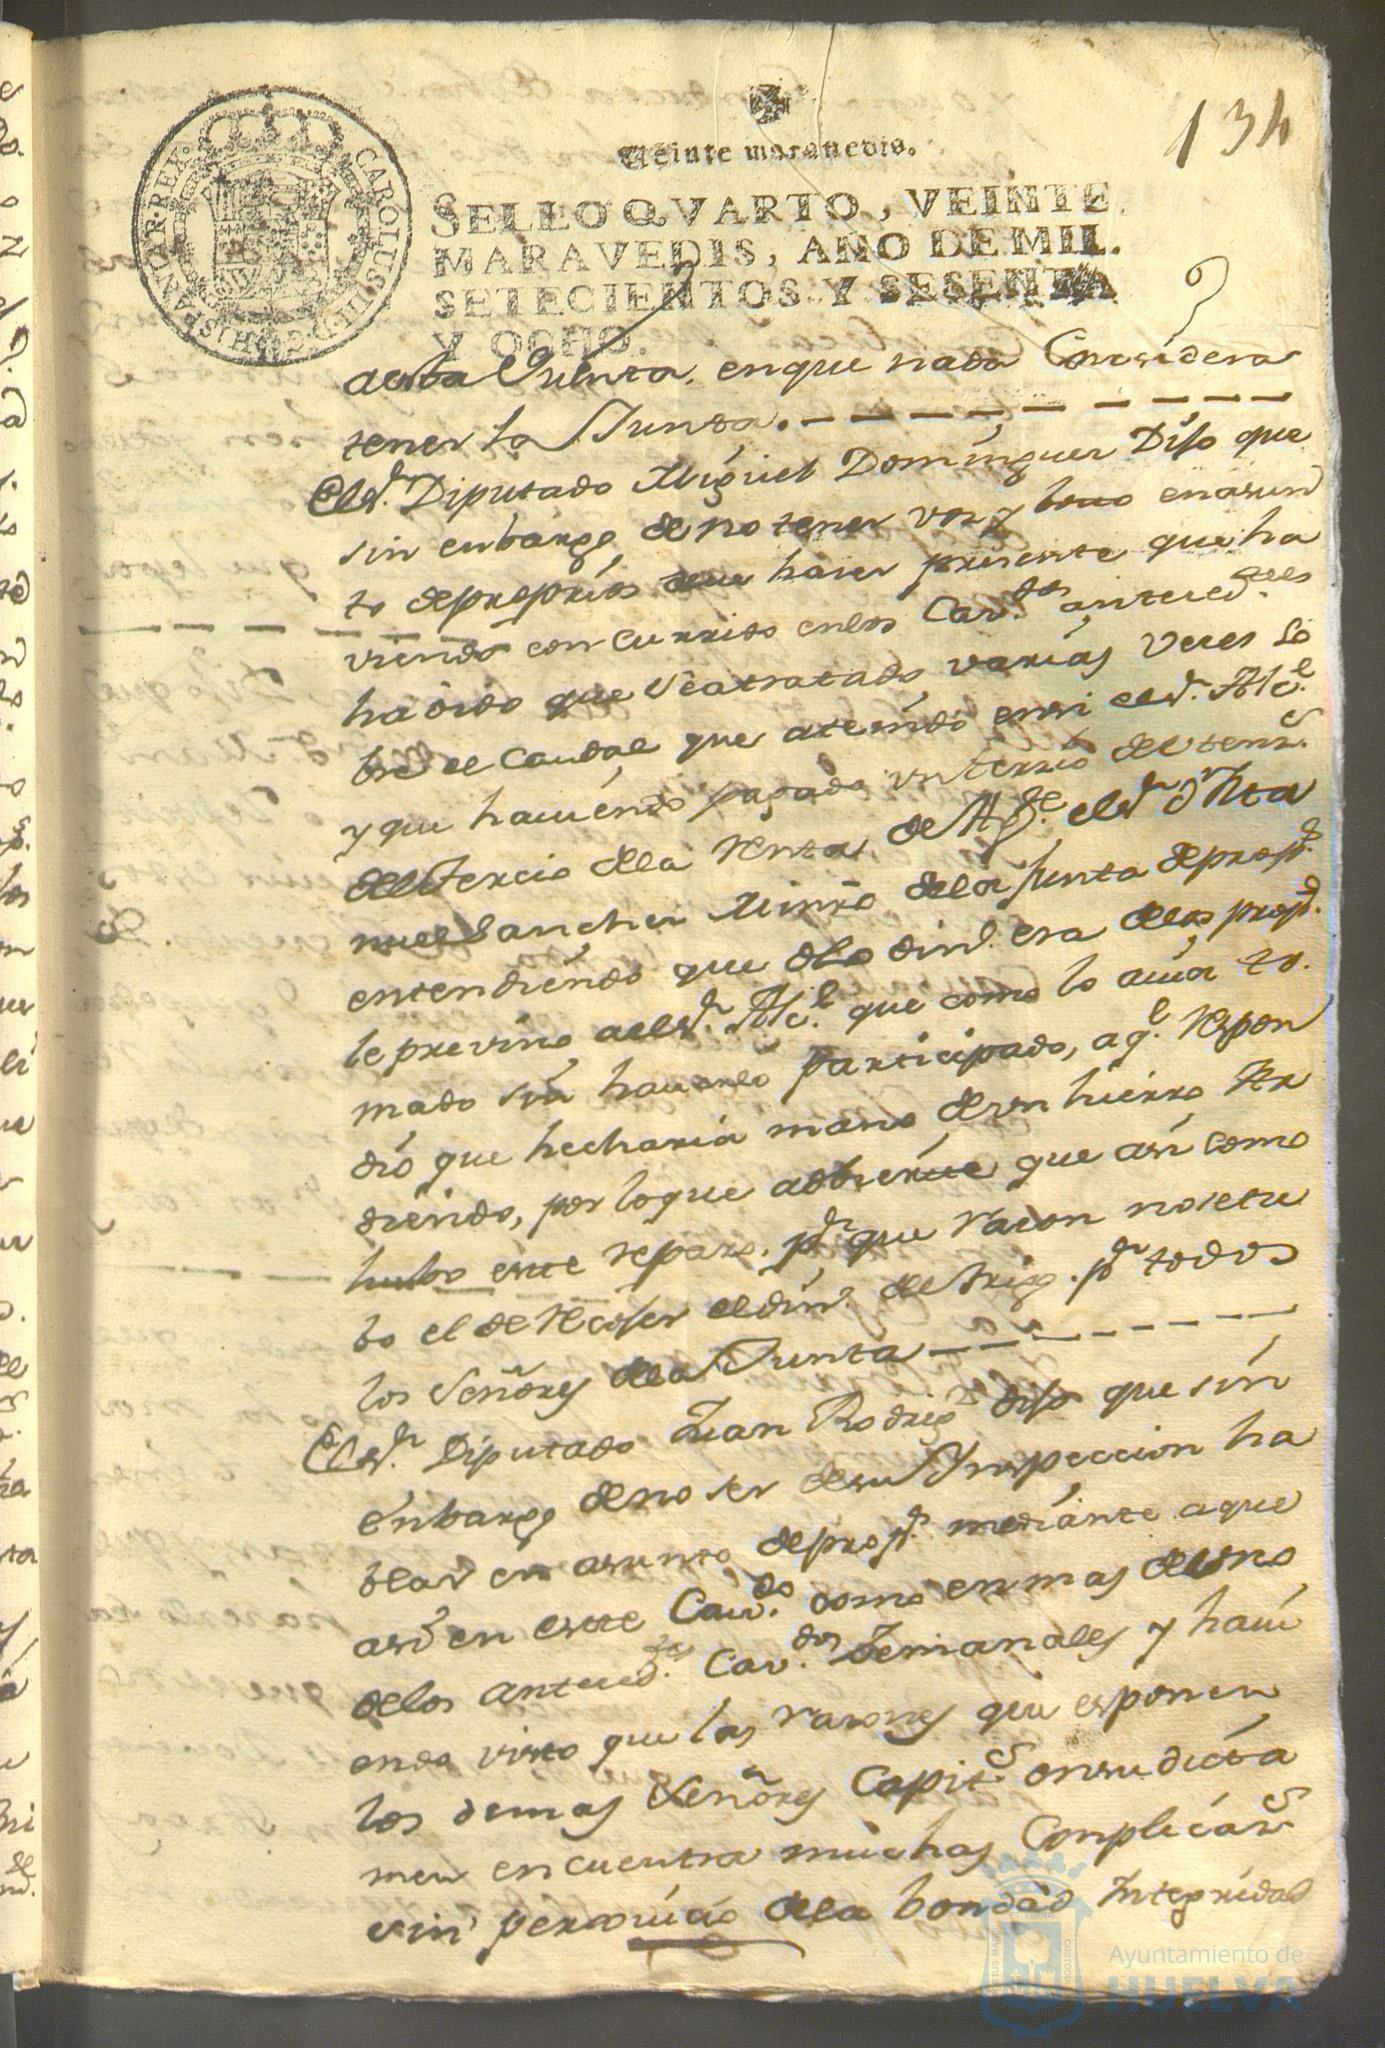 134
Veinte maravedis.
SELLO QVARTO, VEINTE
MARAVEDIS, AÑO DE MIL
SETECIENTOS Y SESENTA
Y OCHO.
CAROLUS III D G HISPANIAR REX
Cuenta, enque nada Considera
tener la Junta.
El Sr. Diputado Miguel Dominguez Dijo que
sin enbargo de no tener voz y boto enasun
to depropios deve hacer presente que ha
viendo concurrido enlos Cav.dos anteced.tes
ha oido que seatratado varias veces so
bre el Caudal que atenido ensi el Sr. Alc.e
y que haviendo pagado un tercio
del tercio dela renta de
Sanchez Miinro dela Junta deprop.s
entendiendo que dho din.o era delos prop.s
le previno a el Sr. Alc.e que como lo avia to
mado sin haverlo participado, a q.e Respon
dio que hecharia mano de un hierro Ar
diendo, por loque adbierte que asi como
hubo este reparo, p.r que razon nosetu
bo el de Recojer el din.o de trigo p.r todos
los Señores dela Junta
El Sr. Diputado Juan Rodrig.z dijo que sin
enbargo deno ser desu Inspeccion ha
blar en asunto deprop.s mediante aque
asi en este Cav.do como en mas de uno
delos anteced.tes Cav.dos Semanales y havi
endo visto que las razones que esponen
los demas Señores Capit.s ensu dicta
men encuentra muchas Complicaz.s
sin perjuicio dela bondad Integridad
Ayuntamiento de
HUELVA